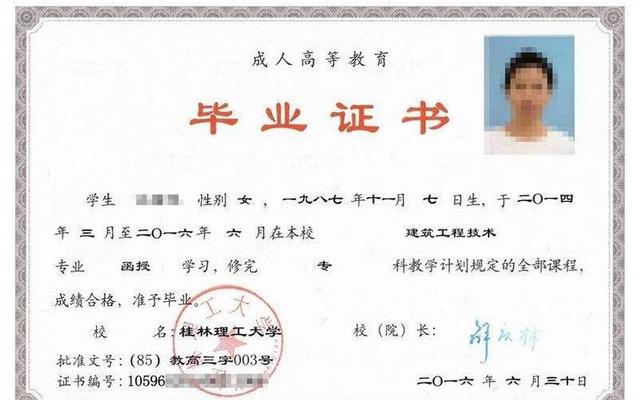 成人高等教育
毕业证书
学生 性别 女 ,一九八七 年十一月 七 日生,于 二〇一四
年 三 月至二〇一六年 六 月在本校 建筑工程技术
专业 函授 学习,修完 专 科教学计划规定的全部课程,
成绩合格,准予毕业。
校 名:桂林理工大学 校(院)长:
批准文号:(85)教高三字003号
证书编号:10596
二〇一六 年 六 月三十日